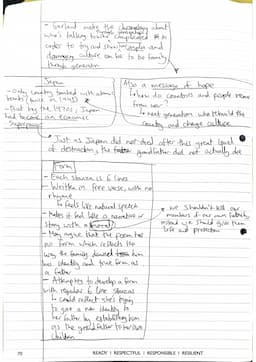 - Garland make the chronology about
who's talking to who complicated in
order to try and show how people and
damaging culture can be to be family
through generation
Japan
- Only country bombed with atomic
bombs (twice in 1945)
- But by the 1970s, Japan
had become an economic
Superpower
Also a message of hope
how do countries and people recover
from war
next generation who rebuild the
country and change culture
Just as Japan did not die after this great level
of destruction, the grandfather did not actually die
Form
- Each stanza is 6 lines
- Written in free verse, with no
rhyme
Feels like natural speech
- Makes it feel like a narrative or
story with a
- May argue that the poem has
no form which reflects the
way the family denied him
his identity and true form as
a father
- Attempts to develop a form
with regular 6 line stanzas
could reflect she's trying
to give a new identity to
her father by establishing him
as the grandfather to her own
children
* We shouldn't kill our
members of our own family,
instead we should give them
love and protection
70
READY | RESPECTFUL | RESPONSIBLE | RESILIENT